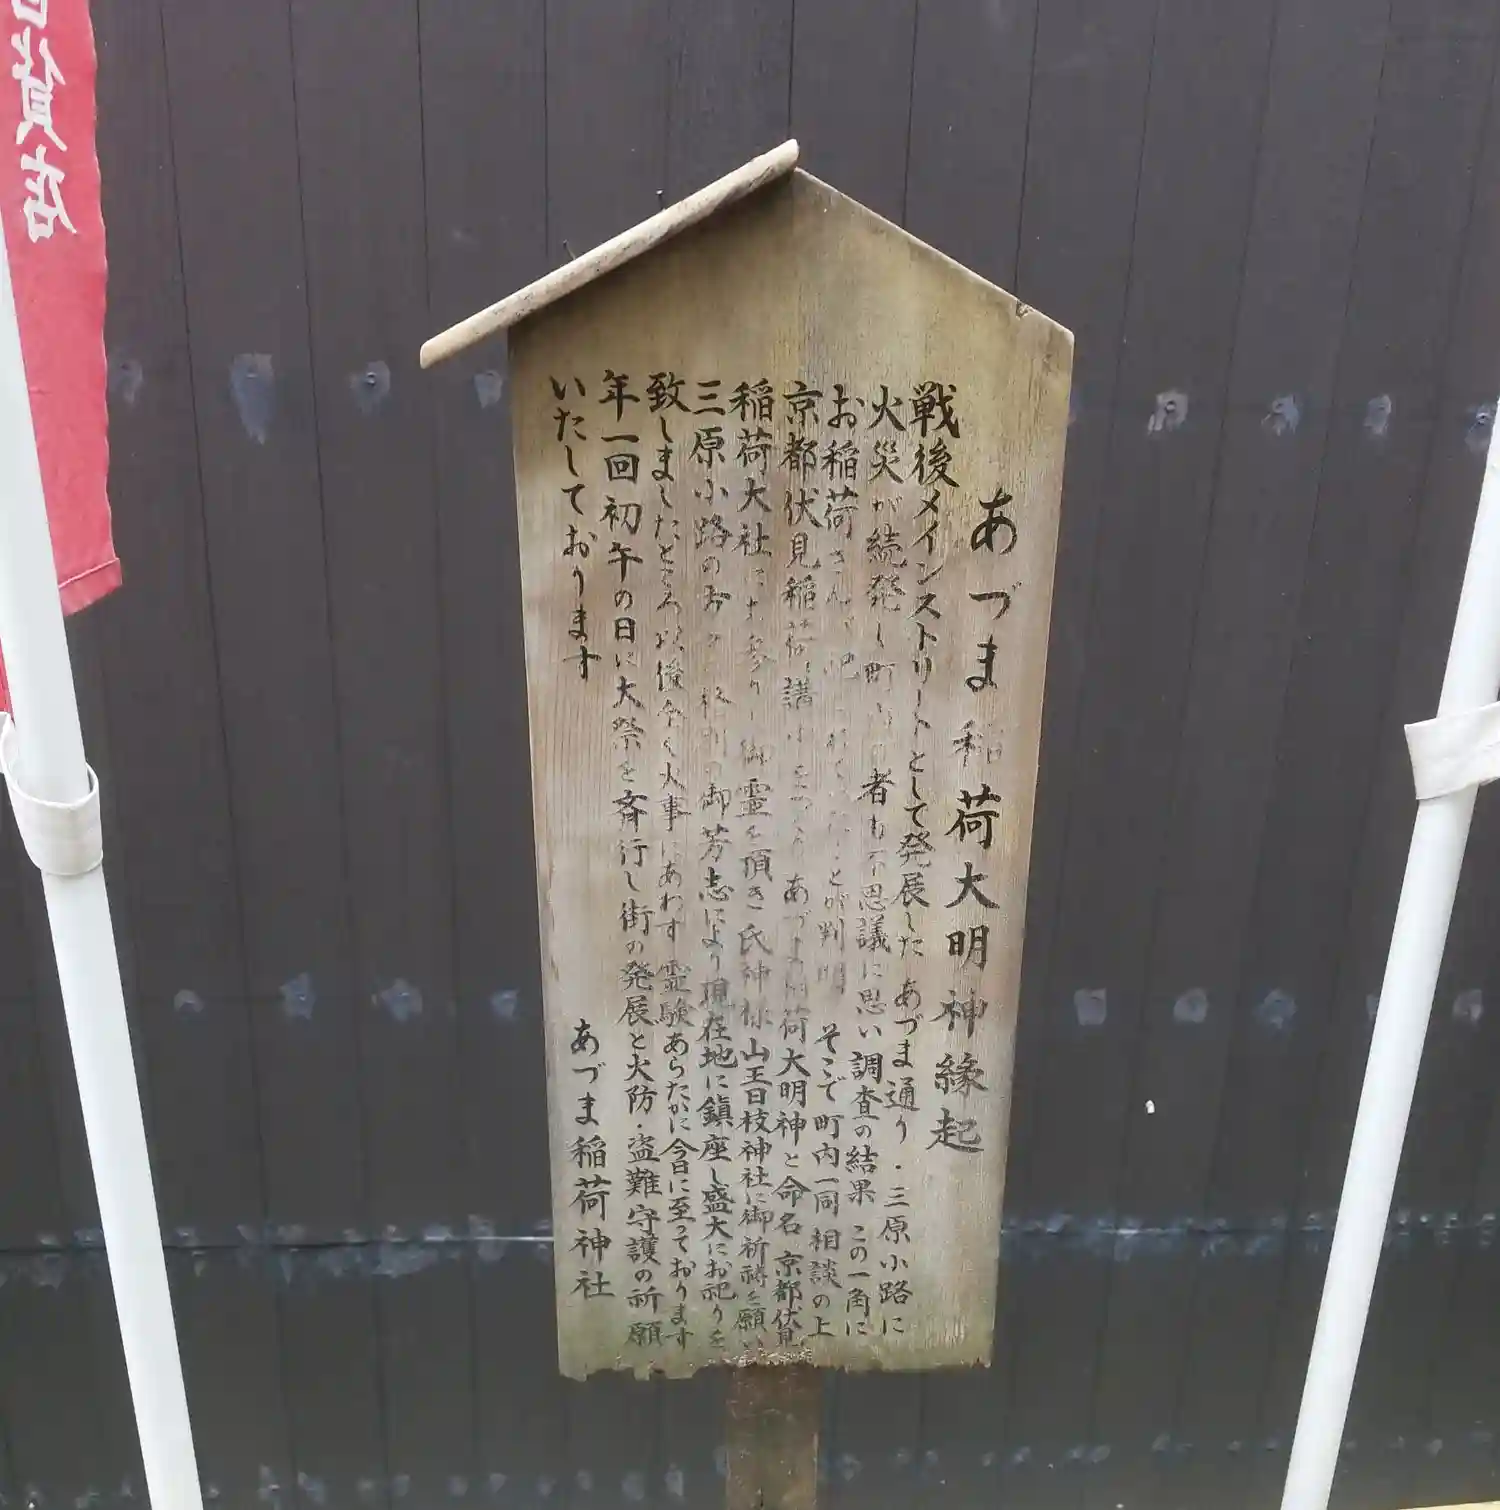 あづま稲荷大明神縁起
戦後メインストリートとして発展した あづま通り・三原小路に
火災が続発し町内の者も不思議に思い調査の結果 この一角に
お稲荷さんが祀 ことが判明 そこで町内一同相談の上
京都伏見稲荷 講 あづま稲荷大明神と命名 京都伏見
稲荷大社にお参りし御霊を頂き氏神様山王日枝神社に御祈祷を願い
三原小路の 格別の御芳志により現在地に鎮座し盛大にお祀りを
致しましたところ以後全く火事にあわず霊験あらたかに今日に至っております
年一回初午の日に大祭を斉行し街の発展と火防・盗難守護の祈願
いたしております
あづま稲荷神社
貨店